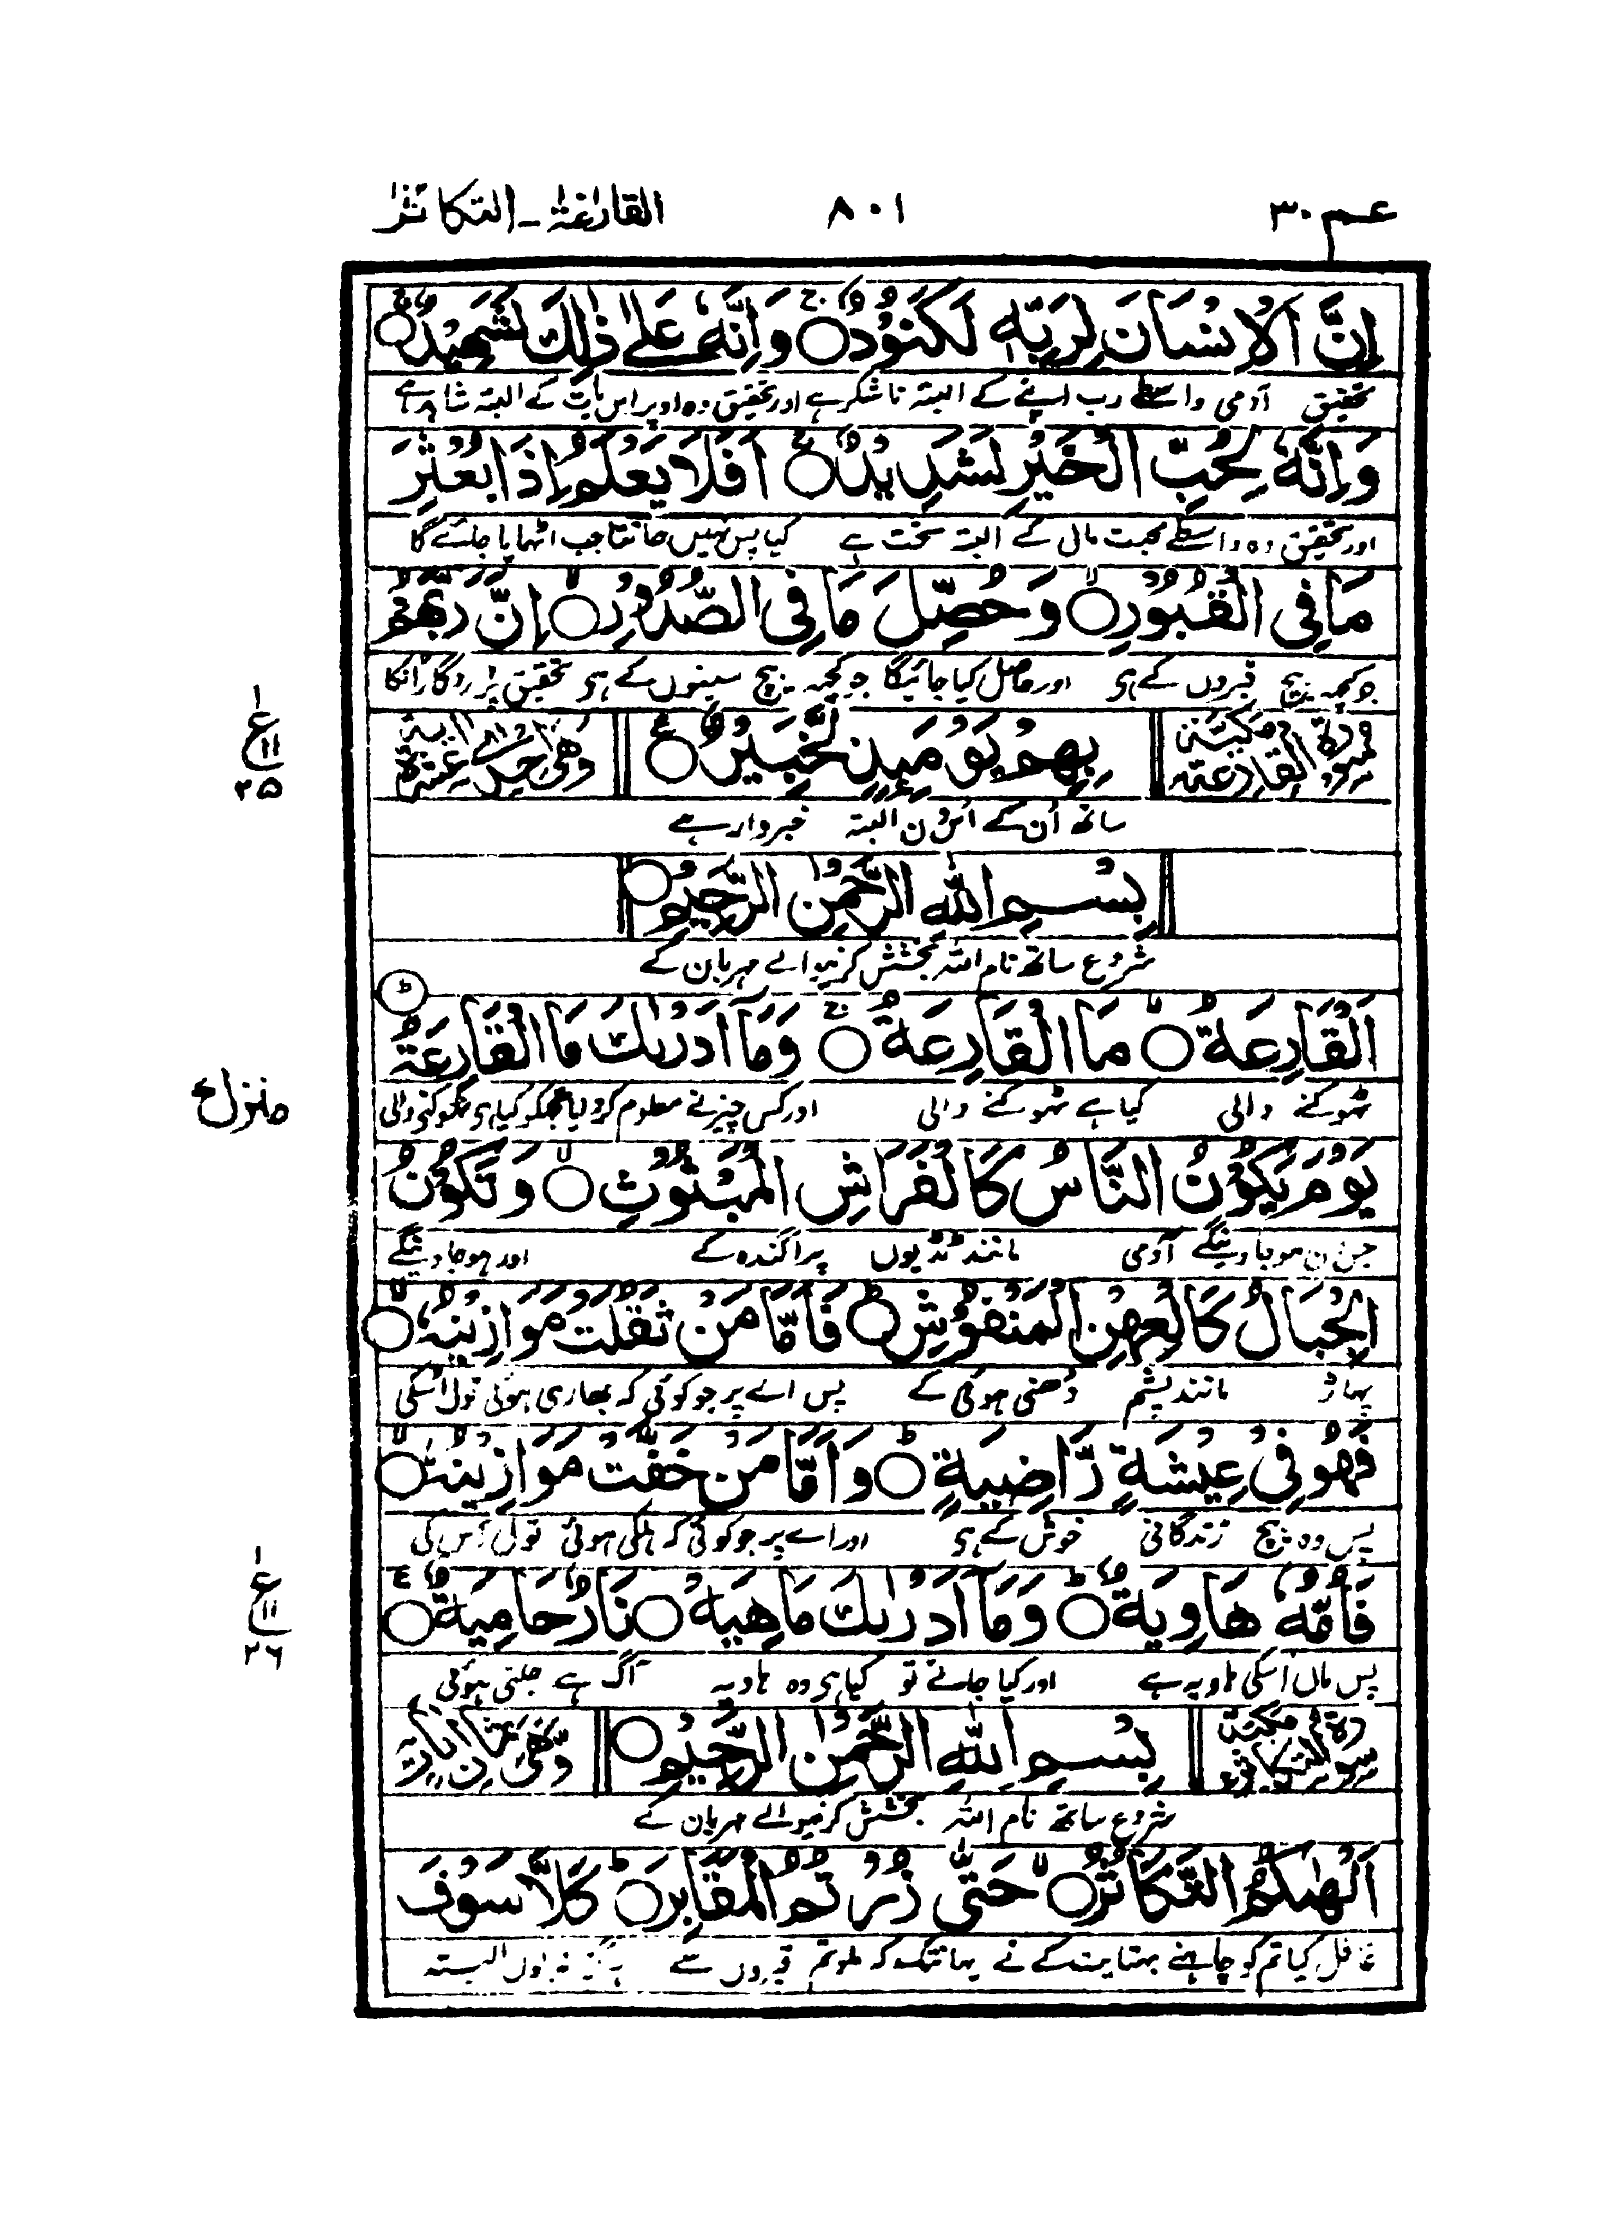 عم ٣٠
٨٠١
القارعة ـ التكاثر
إِنَّ الْإِنْسَانَ لِرَبِّهٖ لَكَنُوْدٌ ۝ وَإِنَّهٗ عَلٰى ذٰلِكَ لَشَهِيْدٌ ۝
تحقیق آدمی واسطے رب اپنے کے البتہ ناشکر ہے اور تحقیق وہ اوپر اس بات کے البتہ شاہد ہے
وَإِنَّهٗ لِحُبِّ الْخَيْرِ لَشَدِيْدٌ ۝ أَفَلَا يَعْلَمُ إِذَا بُعْثِرَ
اور تحقیق وہ واسطے محبت مال کے البتہ سخت ہے کیا پس نہیں جانتا جب اٹھایا جائے گا
مَا فِى الْقُبُوْرِ ۝ وَحُصِّلَ مَا فِى الصُّدُوْرِ ۝ إِنَّ رَبَّهُمْ
جو کچھ بیچ قبروں کے ہی اور حاصل کیا جائیگا جو کچھ بیچ سینوں کے ہی تحقیق پروردگار انکا
سورة القارعة مكية
بِهِمْ يَوْمَئِذٍ لَّخَبِيْرٌ ۝
وهى احدى عشرة اية
ع ١١ ٢٥
ساتھ اُن کے اُس دن البتہ خبردار ہے
بِسْمِ اللهِ الرَّحْمٰنِ الرَّحِيْمِ ۝
شروع ساتھ نام اللہ بخشش کرنیوالے مہربان کے
الْقَارِعَةُ ۝ مَا الْقَارِعَةُ ۝ وَمَا أَدْرٰىكَ مَا الْقَارِعَةُ ۝
ٹھوکنے والی کیا ہے ٹھوکنے والی اور کس چیز نے معلوم کروایا تجھکو کیا ہی ٹھوکنے والی
منزل ٧
يَوْمَ يَكُوْنُ النَّاسُ كَالْفَرَاشِ الْمَبْثُوْثِ ۝ وَتَكُوْنُ
جس دن ہوجاوینگے آدمی مانند ٹڈیوں پراگندہ کے اور ہوجاوینگے
الْجِبَالُ كَالْعِهْنِ الْمَنْفُوْشِ ۝ فَأَمَّا مَنْ ثَقُلَتْ مَوَازِيْنُهٗ ۝
پہاڑ مانند پشم دُھنی ہوئی کے پس اے پر جو کوئی کہ بھاری ہوئی تول اُسکی
فَهُوَ فِى عِيْشَةٍ رَّاضِيَةٍ ۝ وَأَمَّا مَنْ خَفَّتْ مَوَازِيْنُهٗ ۝
پس وہ بیچ زندگانی خوش کے ہی اور اے پر جو کوئی کہ ہلکی ہوئی تول اُس کی
فَأُمُّهٗ هَاوِيَةٌ ۝ وَمَا أَدْرٰىكَ مَاهِيَهْ ۝ نَارٌ حَامِيَةٌ ۝
ع ١١ ٢٦
پس ماں اسکی ہاویہ ہے اور کیا جانے تو کیا ہی وہ ہاویہ آگ ہے جلتی ہوئی
سورة التكاثر مكية
بِسْمِ اللهِ الرَّحْمٰنِ الرَّحِيْمِ ۝
وهى ثمان ايات
شروع ساتھ نام اللہ بخشش کرنیوالے مہربان کے
أَلْهٰىكُمُ التَّكَاثُرُ ۝ حَتّٰى زُرْتُمُ الْمَقَابِرَ ۝ كَلَّا سَوْفَ
غافل کیا تم کو چاہنے بہتایت کے نے یہانتک کہ ملو تم قبروں سے ہرگز نہ یوں البتہ